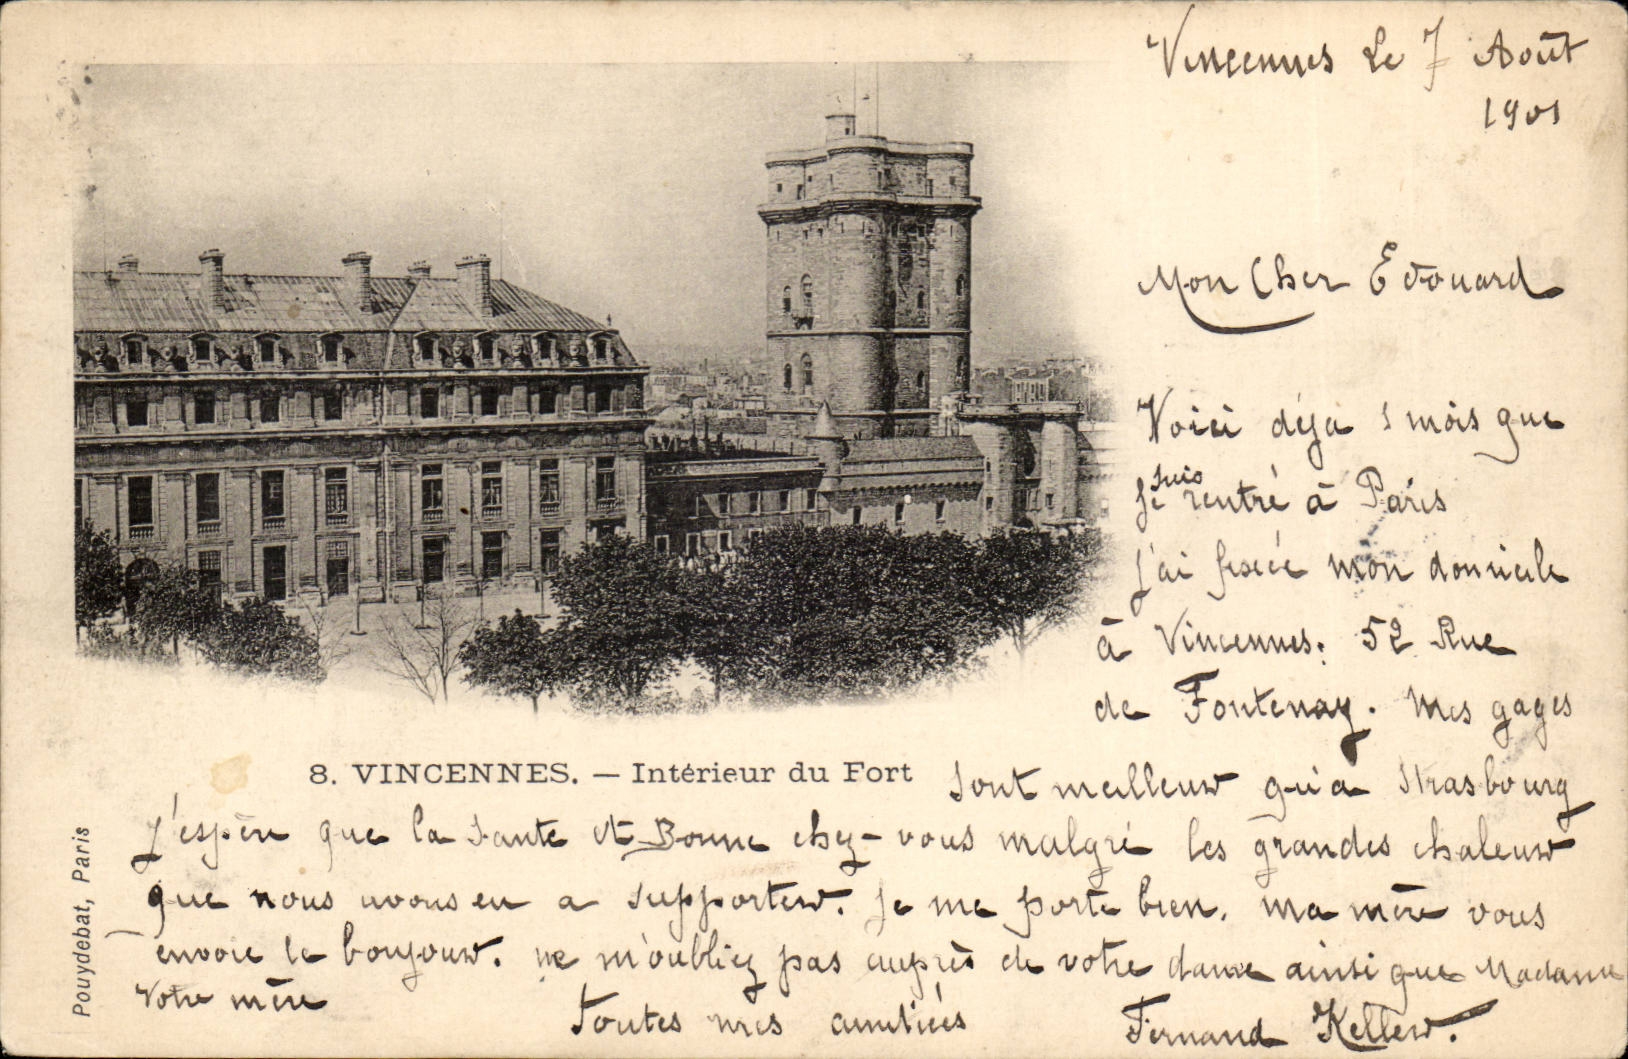 Vincennes Le 7 Août
1901
Mon Cher Edouard
Voici déja 1 mois que
je suis rentré à Paris
J'ai fixée mon domicile
à Vincennes. 52 Rue
de Fontenay. Mes gages
8. VINCENNES. — Intérieur du Fort
Sont meilleur qu'a Strasbourg
J'espère que la Sante et Bonne chez-vous malgré les grandes chaleur
que nous avons eu a supporter. Je me porte bien. Ma mère vous
envoie le bonjour. ne m'oubliez pas auprès de votre dame ainsi que Madame
Votre mère
Toutes mes amitiées
Fernand Keller.
Pouydebat, Paris